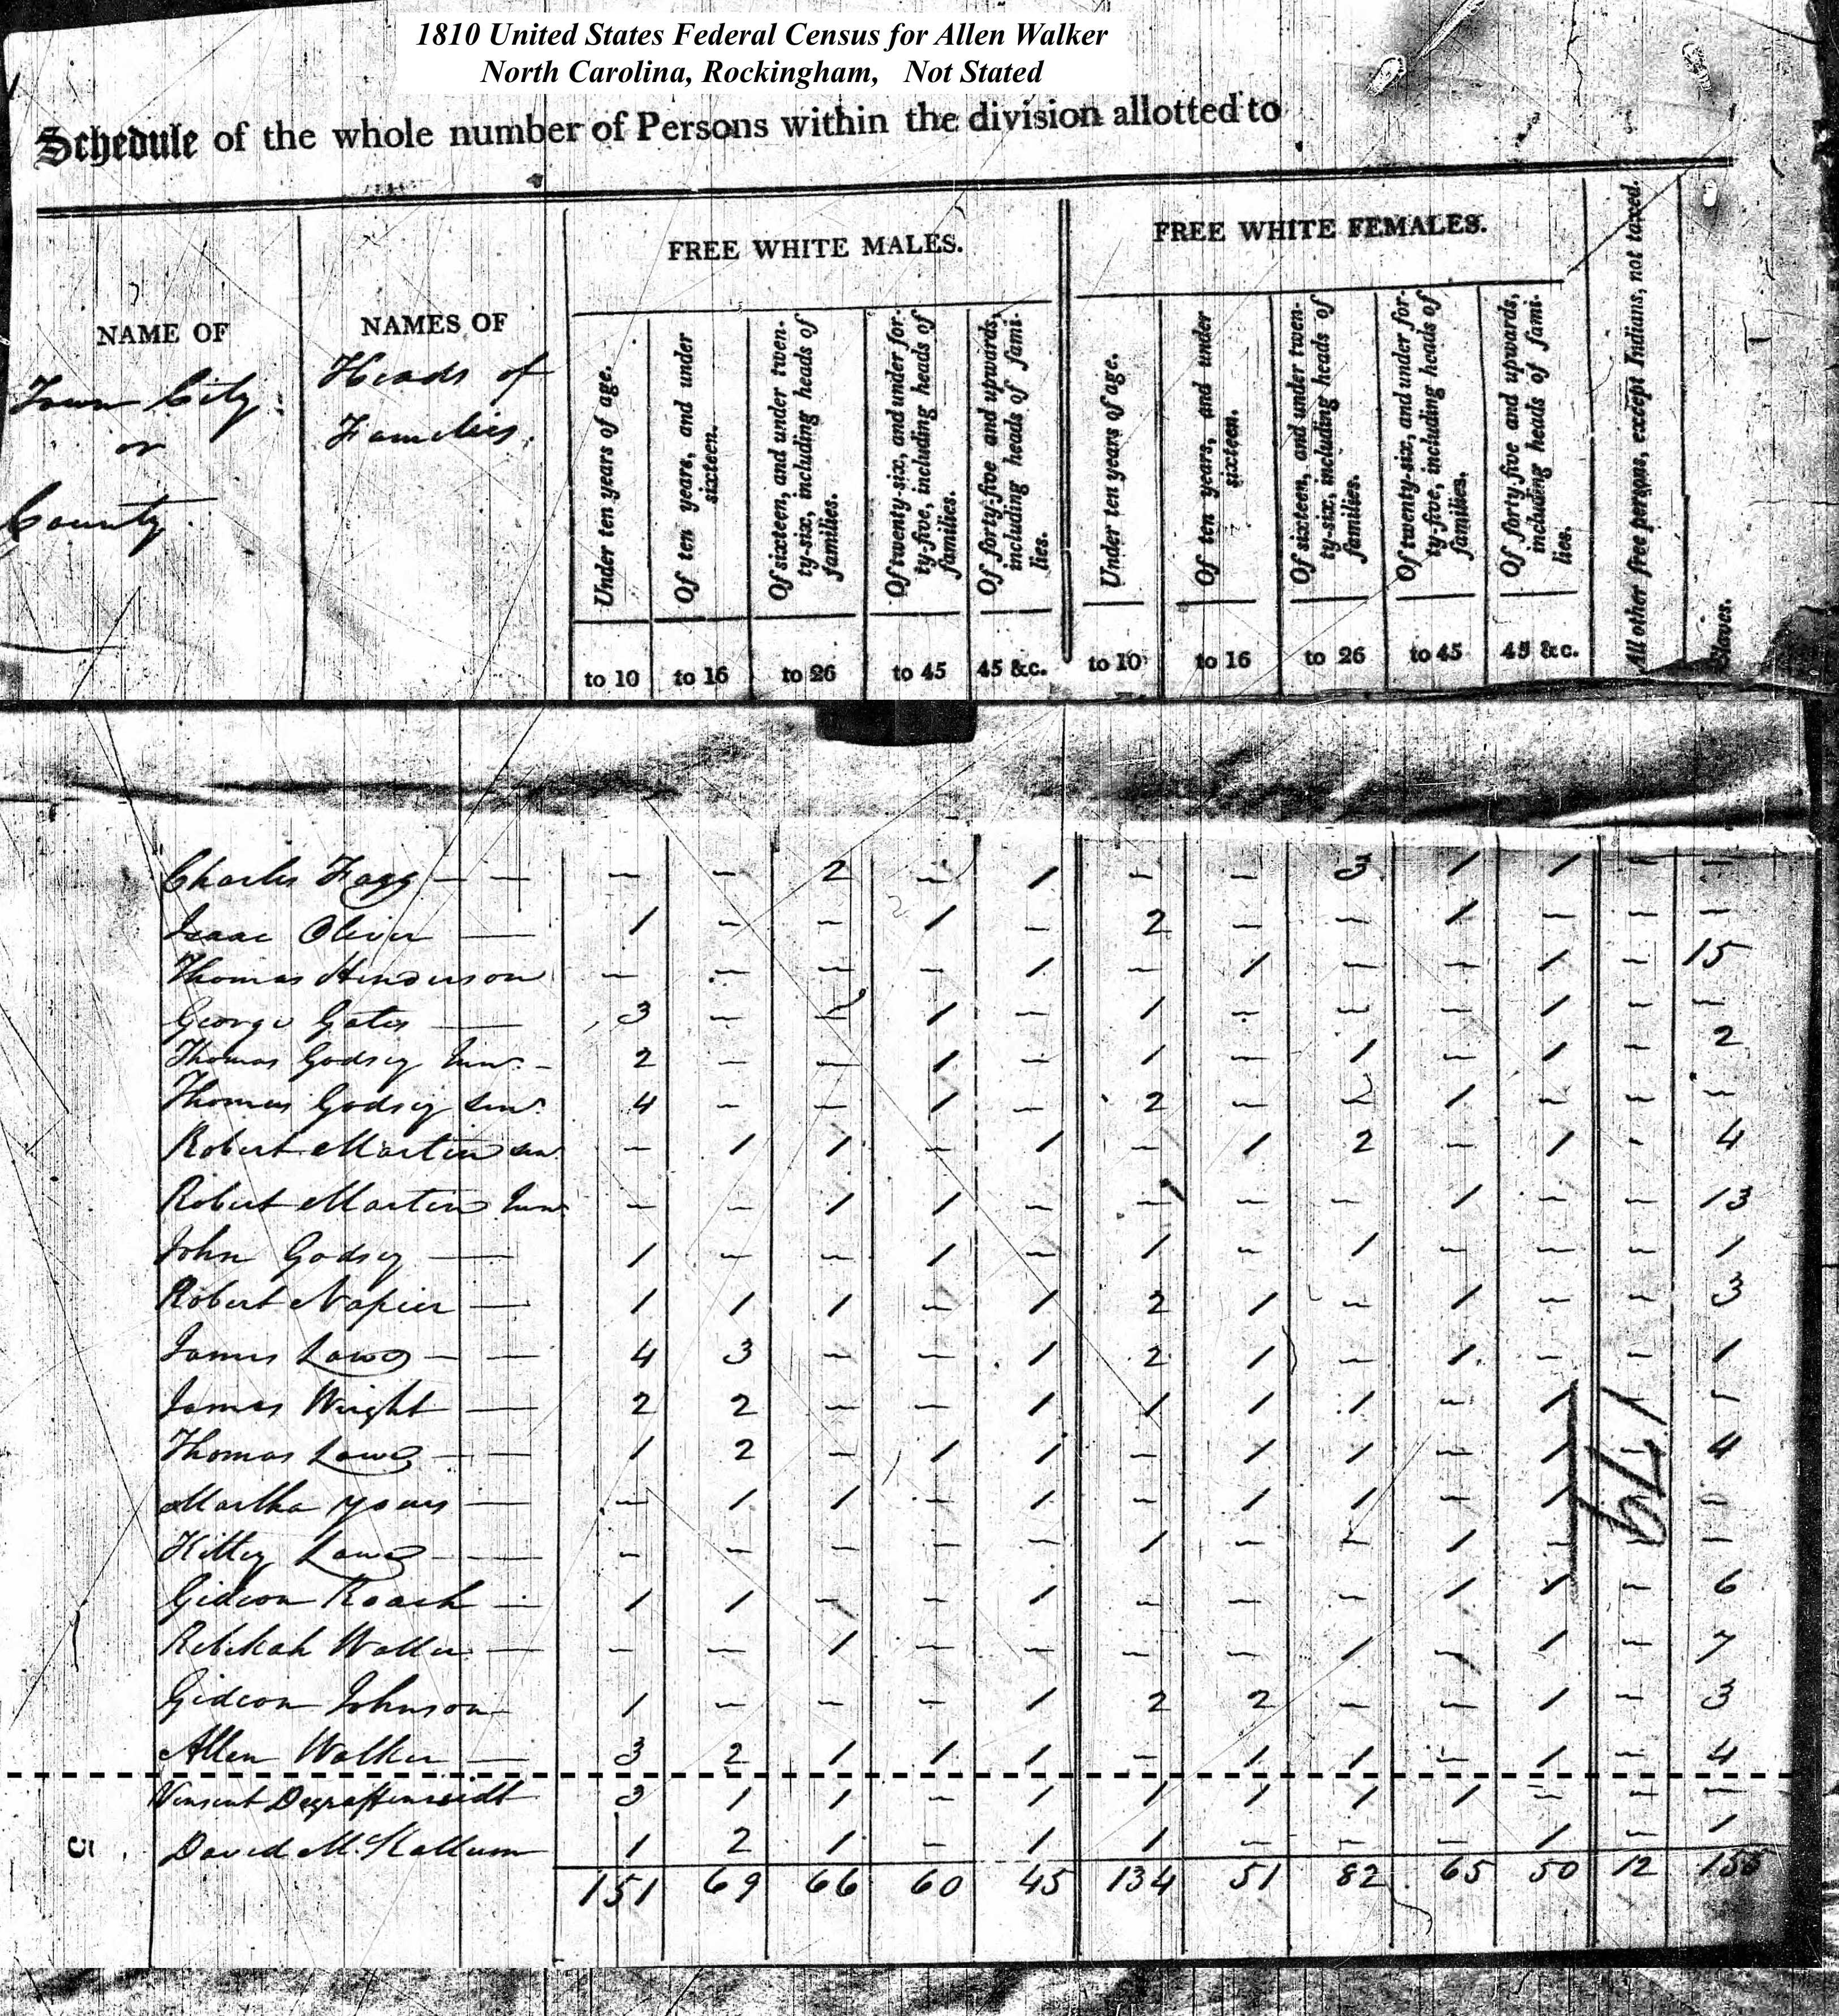 1810 United States Federal Census for Allen Walker
North Carolina, Rockingham, Not Stated
Schedule of the whole number of Persons within the division allotted to
FREE WHITE MALES.
FREE WHITE FEMALES.
NAME OF
Town City
or
County
NAMES OF
Heads of
Families.
Under ten years of age.
Of ten years, and under
sixteen.
Of sixteen, and under twen-
ty-six, including heads of
families.
Of twenty-six, and under for-
ty-five, including heads of
families.
Of forty-five and upwards,
including heads of fami-
lies.
Under ten years of age.
Of ten years, and under
sixteen.
Of sixteen, and under twen-
ty-six, including heads of
families.
Of twenty-six, and under for-
ty-five, including heads of
families.
Of forty-five and upwards,
including heads of fami-
lies.
All other free persons, except Indians, not taxed.
Slaves.
to 10 to 16 to 26 to 45 45 &c. to 10 to 16 to 26 to 45 45 &c.
Charles Fagg — — — — 2 — 1 — — 3 1 1 — —
Isaac Oliver — 1 — — 1 — 2 — — 1 — — —
Thomas Henderson — — — — 1 — 1 — — 1 — 15
George Gates — 3 — — 1 — 1 — — — 1 — —
Thomas Godsey Junr. — 2 — — 1 — 1 — 1 — 1 — 2
Thomas Godsey Senr. 4 — — 1 — 2 — — 1 — — —
Robert Martin Senr. — 1 1 — 1 — 1 2 — 1 — 4
Robert Martin Junr. — — 1 1 — — — 1 — — 13
John Godsey — 1 — — 1 — 1 — 1 — — — 1
Robert Napier — 1 1 1 — 1 2 1 — 1 — — 3
James Lowe — — 4 3 — — 1 2 1 — 1 — — 1
James Wright — 2 2 — — 1 1 1 1 — 1 — —
Thomas Lowe — — 1 2 — 1 1 — 1 1 — 1 — 4
Martha — — 1 1 — 1 — 1 1 — 1 —
Kitty Lowe — — — — — — — 1 — — 1 — — —
174
Gideon Roach — 1 1 — — 1 — — — 1 1 — 6
Rebekah Walker — — — 1 — — — — 1 — 1 — 7
Gideon Johnson — 1 — — — 1 2 2 — — 1 — 3
Allen Walker — 3 2 1 1 1 — 1 1 — 1 — 4
Vinsent Degraffenreidt 3 1 1 — 1 1 1 1 1 — — —
David M. Kallum 1 2 1 — 1 1 — — — 1 — 1
151 69 66 60 45 134 51 82 65 50 12 155